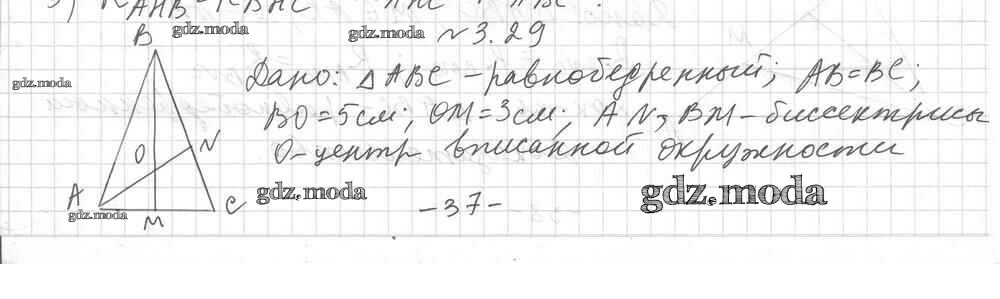 B
gdz.moda
gdz.moda
№ 3.29
gdz.moda
Дано: △ ABC – равнобедренный; AB = BC;
BO = 5 см; OM = 3 см; AN, BM – биссектрисы
O – центр вписанной окружности
O
N
A
gdz.moda
M
C
gdz.moda
– 37 –
gdz.moda